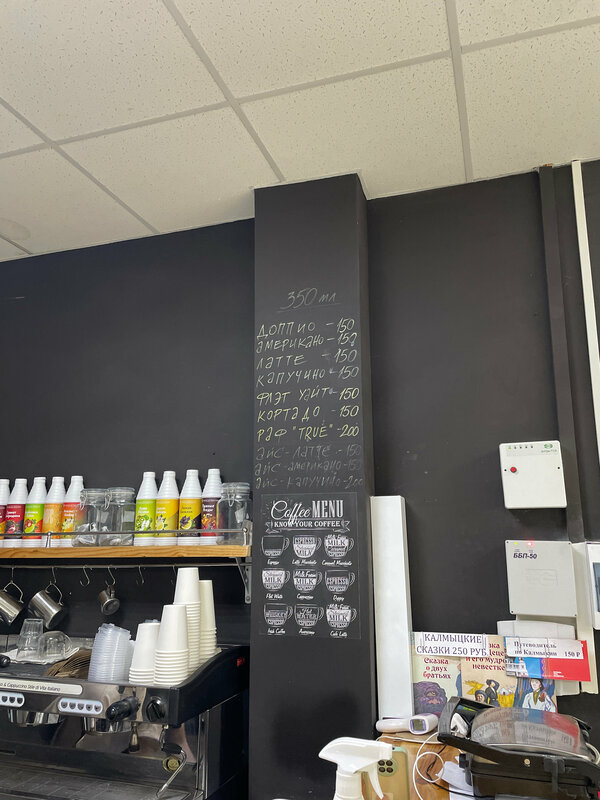 350 мл
ДОППИО - 150
американо - 150
ЛАТТЕ - 150
КАПУЧИНО - 150
ФЛЭТ УАЙТ - 150
КОРТАДО - 150
РАФ "TRUE" - 200
АЙС-ЛАТТЕ - 150
АЙС-американо - 150
АЙС-КАПУЧИНО - 200
Coffee MENU
KNOW YOUR COFFEE
ESPRESSO
MILK
Espresso
Latte Macchiato
Caramel Macchiato
Milk Foam
ESPRESSO
Flat White
Cappuccino
Doppio
WHISKEY
Hot WATER
Milk Foam
MILK
Irish Coffee
Americano
Cafe Latte
& Cappuccino Stile di Vita Italiano
ББП-50
КАЛМЫЦКИЕ
СКАЗКИ 250 РУБ.
Сказка
о двух
братьях
и его мудрой
невестке
Путеводитель
по Калмыкии 150 Р